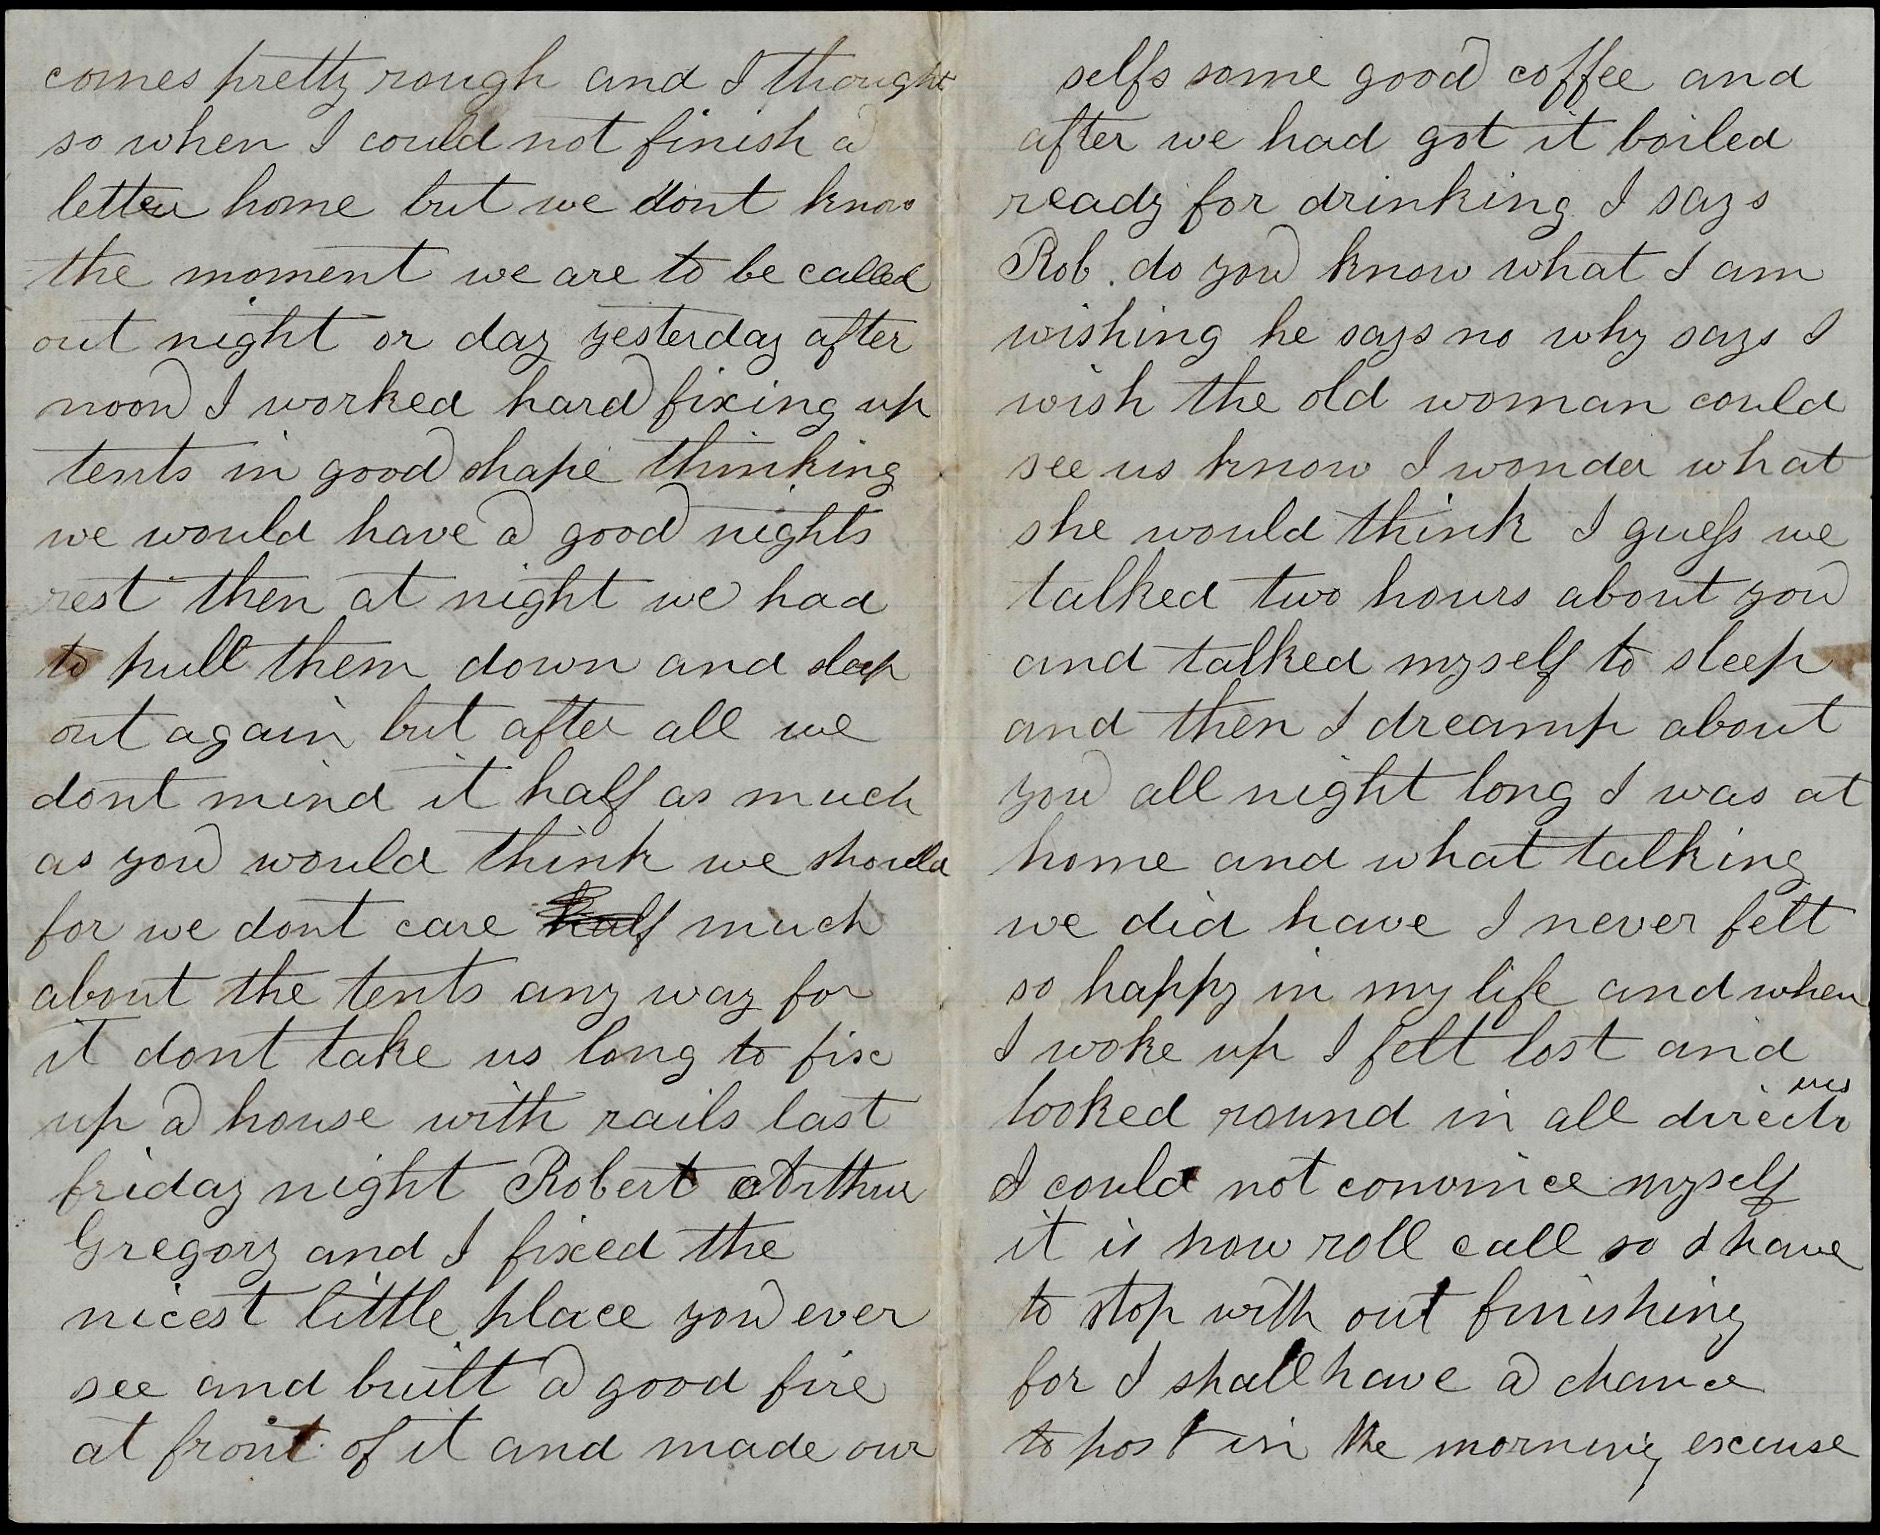 comes pretty rough and I thought
so when I could not finish a
letter home but we dont know
the moment we are to be called
out night or day yesterday after
noon I worked hard fixing up
tents in good shape thinking
we would have a good nights
rest then at night we had
to pull them down and sleep
out again but after all we
dont mind it half as much
as you would think we should
for we dont care half much
about the tents any way for
it dont take us long to fix
up a house with rails last
friday night Robert Arthur
Gregory and I fixed the
nicest little place you ever
see and built a good fire
at front of it and made our
selfs some good coffee and
after we had got it boiled
ready for drinking I says
Rob. do you know what I am
wishing he says no why says I
wish the old woman could
see us know I wonder what
she would think I guess we
talked two hours about you
and talked myself to sleep
and then I dreamp about
you all night long I was at
home and what talking
we did have I never felt
so happy in my life and when
I woke up I felt lost and
looked round in all directi
I could not convince myself
it is now roll call so I have
to stop with out finishing
for I shall have a chance
to post in the morning excuse